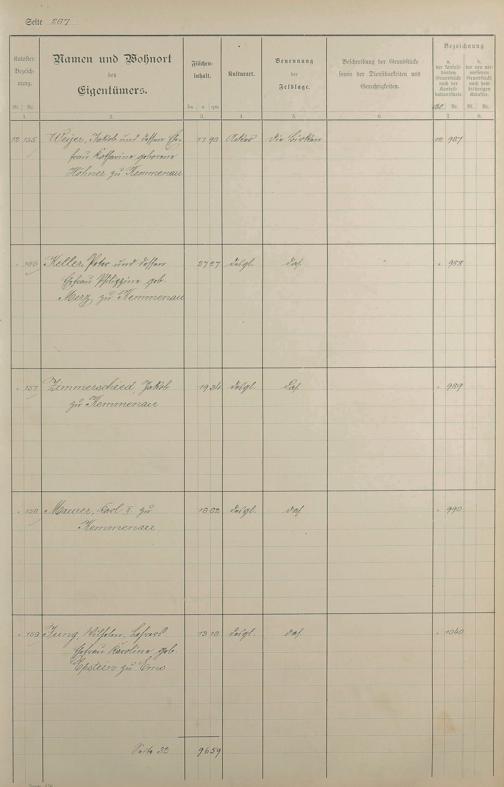 Seite 267
Kataster-
Bezeich-
nung.
Namen und Wohnort
des
Eigentümers.
Flächen-
inhalt.
Kulturart.
Benennung
der
Feldlage.
Beschreibung der Grundstücke
sowie der Dienstbarkeiten und
Gerechtigkeiten.
Bezeichnung
Bl. Nr.
ha a qm
Bl. Nr. Bl. Nr.
1. 2. 3. 4. 5. 6. 7. 8.
155 Weijer, Jakob und dessen Ehe-
frau Katharine geborene
Höhner zu Kemmenau
Acker Die Birken 987
156 Keller, Peter und dessen
Ehefrau Philippine geb.
Merz, zu Kemmenau
27 27 desgl. das. 988
157 Zimmerschied, Jakob
zu Kemmenau
19 34 desgl. das. 989
158 Maurer, Karl I. zu
Kemmenau
18 02 desgl. das. 990
159 Jung, Wilhelm,
Ehefrau Karoline geb.
Epstein zu Ems
desgl. das. 1060
Seite 32 96 59